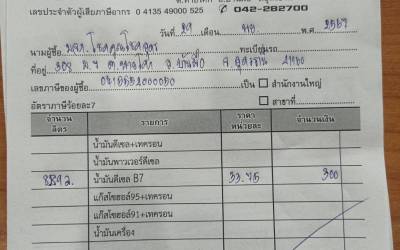 เลขประจำตัวผู้เสียภาษีอากร 0 4135 49000 525 042-282700
วันที่ 29 เดือน พ.ย. พ.ศ. 2567
นามผู้ซื้อ ทะเบียนรถ
ที่อยู่ 309 ม.4 ต. อ.บ้านผือ จ.อุดรธานี 41160
เลขภาษีของผู้ซื้อ เป็น สำนักงานใหญ่
อัตราภาษีร้อยละ7 สาขาที่
จำนวนลิตร รายการ ราคาหน่วยละ จำนวนเงิน
น้ำมันดีเซล+เทครอน
น้ำมันพาวเวอร์ดีเซล
8.892. น้ำมันดีเซล B7 33.75 300
แก๊สโซฮอล์95+เทครอน
แก๊สโซฮอล์91+เทครอน
น้ำมันเครื่อง